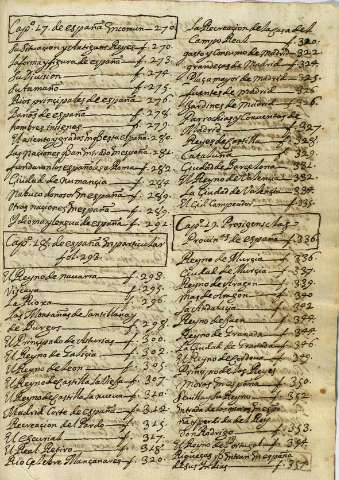 Capº. 17. de españa Encomun - 270.
Su Situaçion y Antiguos Reyes f. 270.
la forma y figura de españa f. 273.
Su Division f. 274.
Su tamaño f. 275.
Rios prinçipales de españa f. 276.
Baños de españa f. 278.
hombres insignes f. 279.
f. 280.
f. 281.
f. 282.
Ciudad de Numançia f. 284.
Nabucodonosor en españa f. 289.
Otras naçiones en españa f. 289.
Ydioma y lengua españa f. 292.
Capº. 18. de españa En particular
fol. 293.
El Reyno de navarra f. 293.
Vizcaya f. 295.
La Rioxa f. 296.
Las Montañas de Santillana y
de Burgos f. 298.
El Prinçipado de Asturias f. 300.
El Reyno de Galiçia f. 302.
El Reyno de Leon f. 305.
El Reyno de Castilla la Vieja f. 307.
El Reyno de Castilla la nueva f. 310.
Madrid Corte de españa f. 312.
Recreaçion del Pardo f. 315.
El escurial f. 317.
El Real Retiro f. 318.
Rio çelebre Mançanares f. 320.
La Recreaçion de la Casa del
Campo Real f. 320.
gasto y Consumo de Madrid f. 322.
grandeças de Madrid f. 324.
Plaça mayor de Madrid f. 325.
fuentes de Madrid f. 326.
Jardines de Madrid f. 326.
Parrochias y Conventos de
Madrid f. 327.
Reyes de Castilla f. 328.
Cataluña f. 330.
Ciudad de Barçelona f. 331.
El Reyno de Valençia f. 332.
La Ciudad de Valençia f. 334.
El Cid Campeador f. 335.
Capº. 19. Prosiguense las
Provinçias de españa f. 336.
Reyno de Murçia f. 336.
Ciudad de Murçia f. 337.
Reyno de Aragon f. 339.
Mas de Aragon f. 340.
La Andaluçia f. 342.
Reyno de Jaen f. 344.
Reyno de Granada f. 344.
Ciudad de Granada f. 346.
El Reyno de Cordova f. 349.
Prinçipio de los Reyes
Moros en españa f. 350.
Sevilla y su Reyno f. 352.
Don Rodrigo f. 353.
El Reyno de Portugal f. 354.
de sus Indias f. 357.